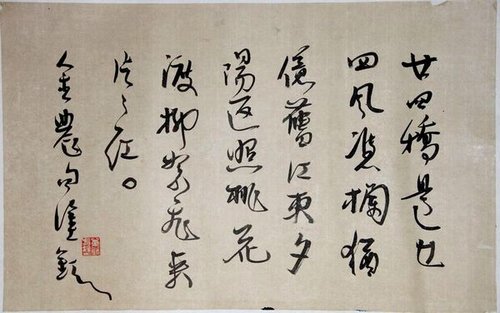 廿四橋邊廿
四風憑欄猶
憶舊江東夕
陽返照桃花
渡柳絮飛來
片々紅。
金農句